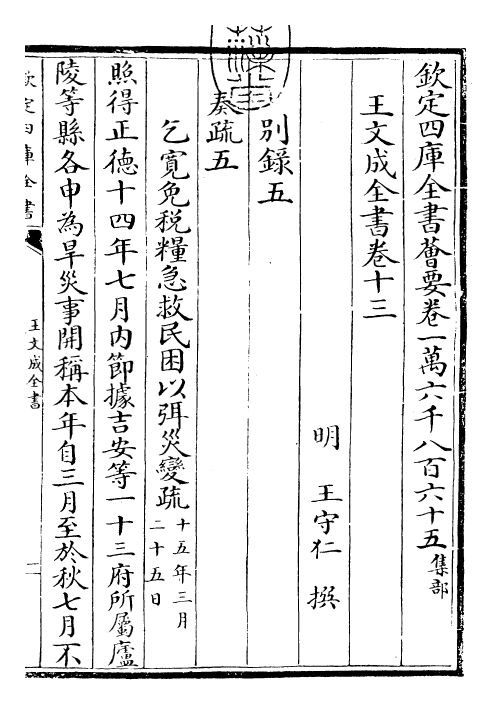 欽定四庫全書薈要卷一萬六千八百六十五集部
王文成全書卷十三
明 王守仁 撰
別錄五
奏疏五
乞寬免稅糧急救民困以弭災變疏十五年三月二十五日
照得正德十四年七月內節據吉安等一十三府所屬廬
陵等縣各申為旱災事開稱本年自三月至於秋七月不
欽定四庫全書
王文成全書